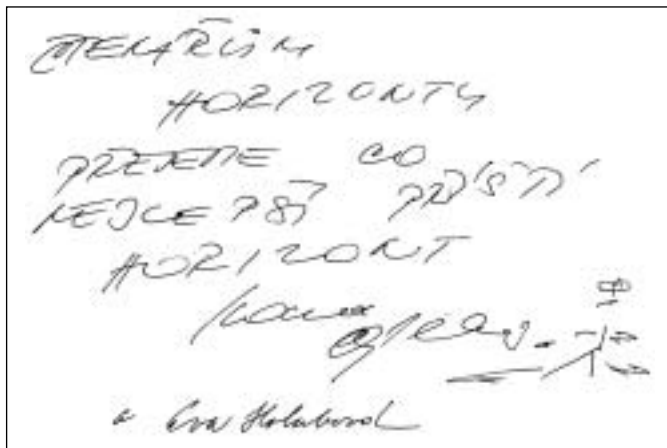 ČTENÁŘŮM
HORIZONTU
PŘEJEME CO
NEJLEPŠÍ PŘÍŠTÍ
HORIZONT
a Eva Holubová